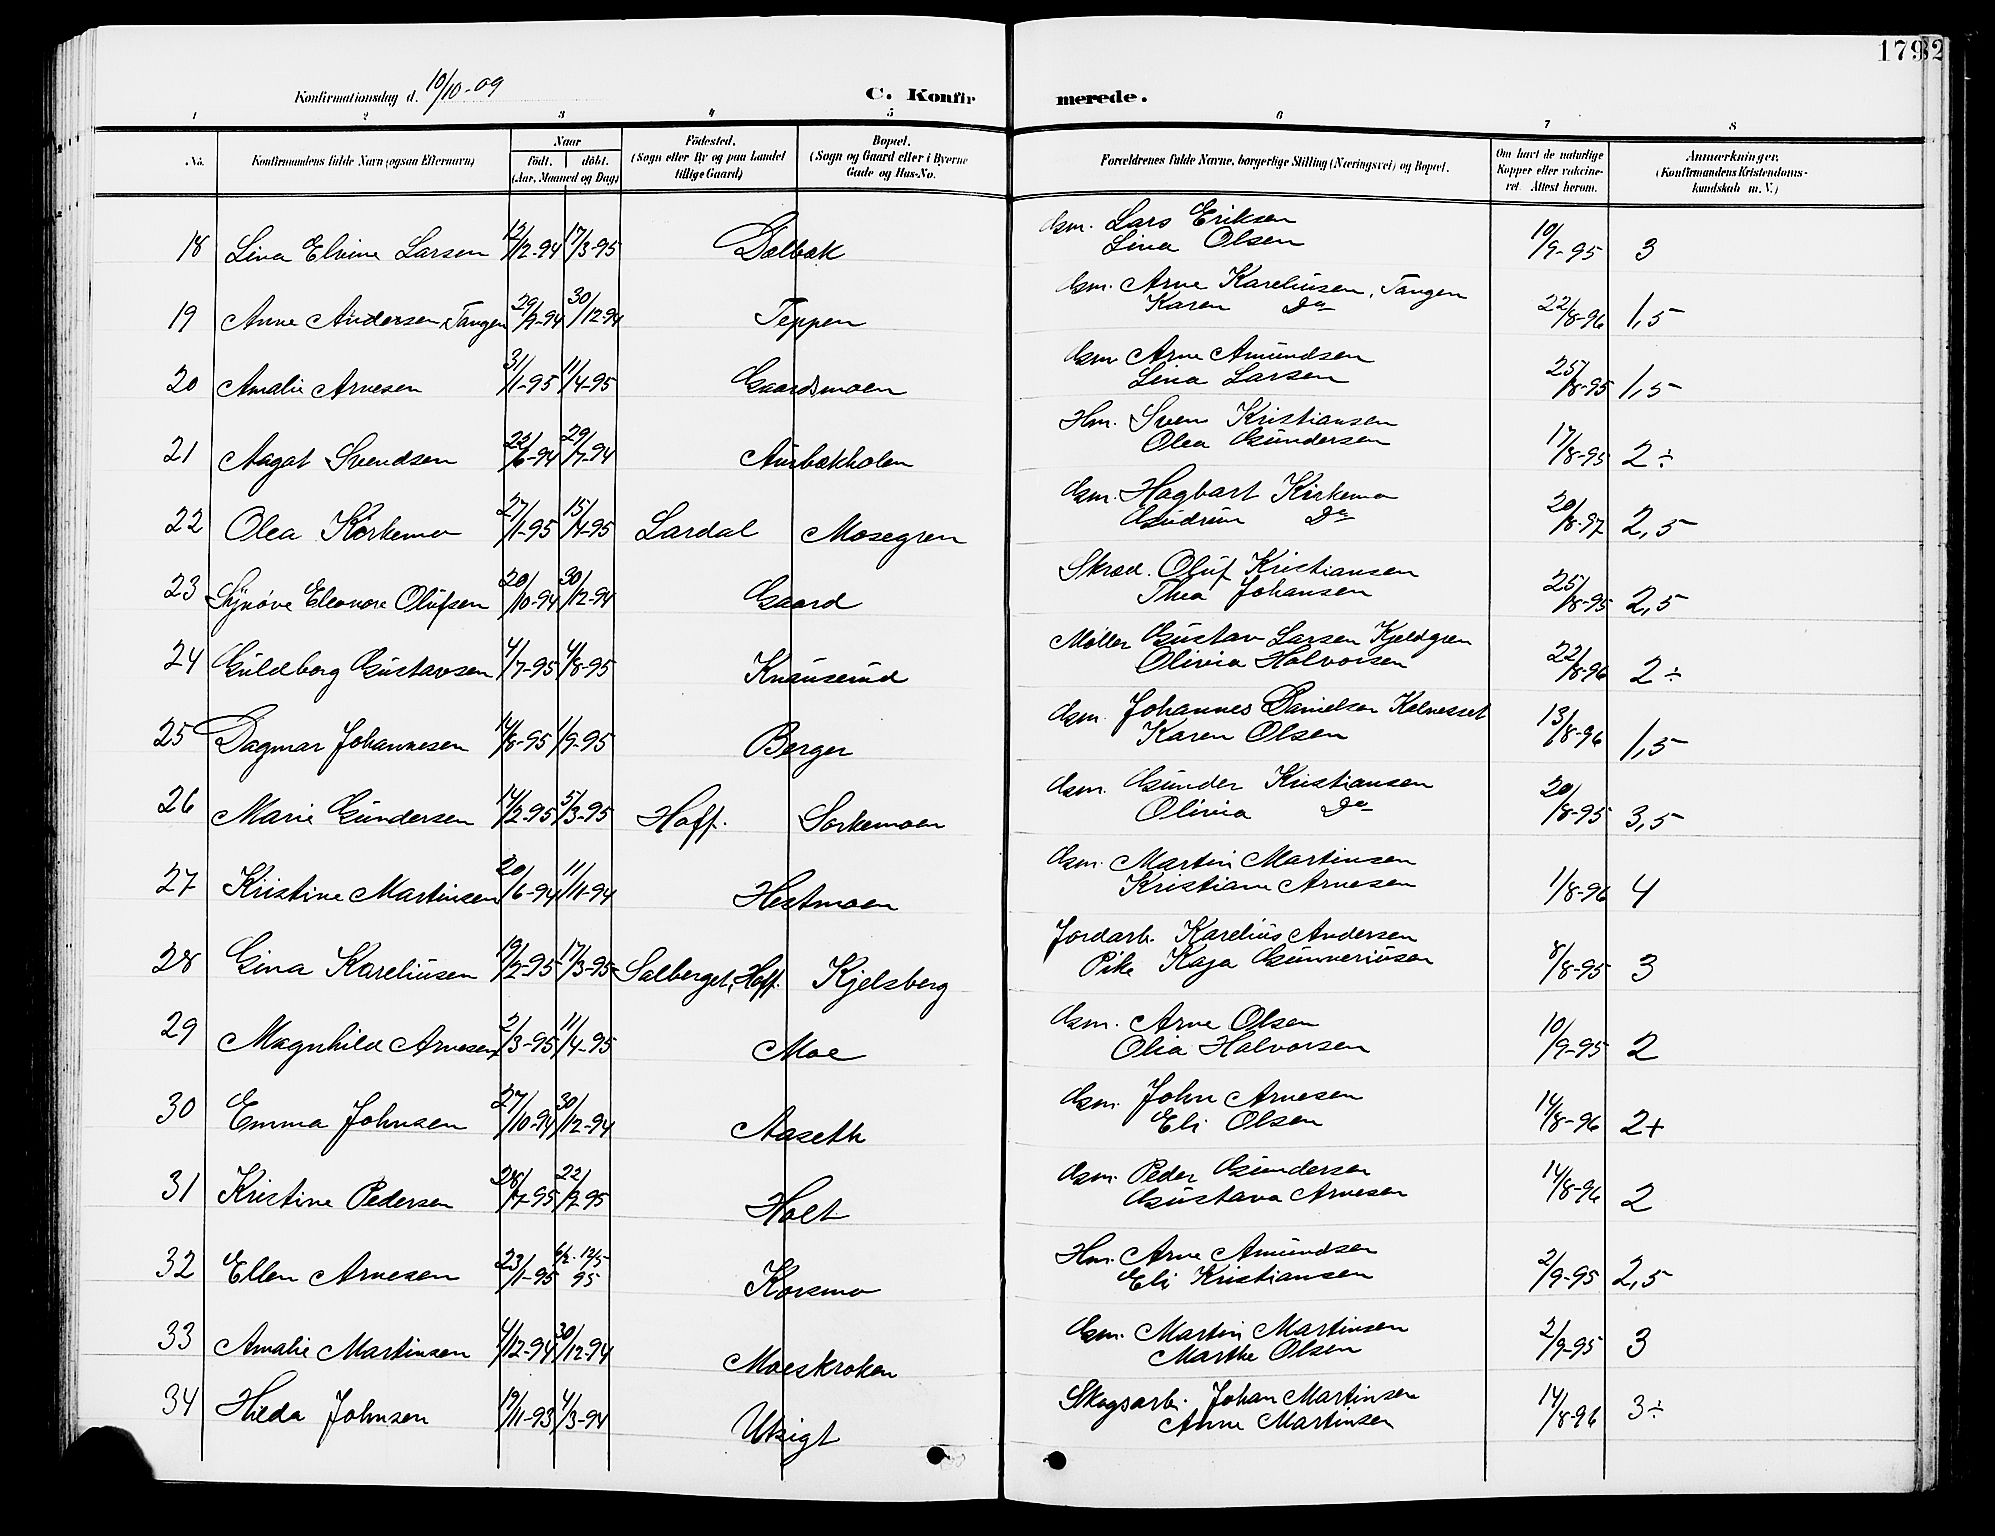 179
Konfirmationsdag d. 10/10-09
C. Konfirmerede.
1 2 3 4 5 6 7 8
No. Konfirmandens fulde Navn (ogsaa Efternavn) Naar født. døbt. (Aar, Maaned og Dag) Födested. (Sogn eller By og paa Landet tillige Gaard) Bopæl. (Sogn og Gaard eller i Byerne Gade og Hus-No. Forældrenes fulde Navne, borgerlige Stilling (Næringsvei) og Bopæl. Om havt de naturlige Kopper eller vaksineret. Attest herom. Anmærkninger. (Konfirmandens Kristendomskundskab m. V.)
18 Lina Elvine Larsen 12/12-94 17/3-95 Dalbæk Gsm. Lars Eriksen
Lina Olsen 10/9-95 3
19 Anne Andersen Tangen 29/9-94 30/12-94 Teppen Gsm. Arne Kareliusen, Tangen
Karen Do 22/8-96 1,5
20 Amalie Arnesen 31/1-95 11/4-95 Gaardsmoen Gsm Arne Amundsen
Lina Larsen 25/8-95 1,5
21 Aagot Svendsen 25/6-94 29/7-94 Aurbækholen Hm. Sven Kristiansen
Olea Gundersen 17/8-95 2÷
22 Olea Kirkemo 27/1-95 15/4-95 Lardal Mosegren Gsm. Hagbart Kirkemo
Gudrun Do 20/8-97 2,5
23 Synøve Eleonore Olufsen 20/10-94 30/12-94 Gaard Skræd. Oluf Kristiansen
Thea Johansen 25/8-95 2,5
24 Guldborg Gustavsen 4/7-95 4/8-95 Knauserud Møller Gustav Larsen Kjeldgren
Olivia Halvorsen 22/8-96 2÷
25 Dagmar Johannesen 14/8-95 1/9-95 Berger Gsm. Johannes Danielsen Kalnesset
Karen Olsen 13/8-96 1,5
26 Marie Gundersen 14/2-95 5/3-95 Hoff. Sorkemoen Gsm. Gunder Kristiansen
Olivia Do 20/8-95 3,5
27 Kristine Martinsen 20/6-94 11/11-94 Hestmoen Gsm. Martin Martinsen
Kristiane Arnesen 1/8-96 4
28 Gina Kareliusen 19/2-95 17/3-95 Salberget, Hoff. Kjelsberg Jordarb. Karelius Andersen
Pike Kaja Gunneriusen 8/8-95 3
29 Magnhild Arnesen 2/3-95 11/4-95 Moe Gsm. Arne Olsen
Olia Halvorsen 10/9-95 2
30 Emma Johnsen 27/10-94 30/12-94 Aaseth Gsm. John Arnesen
Eli Olsen 14/8-96 2+
31 Kristine Pedersen 28/7-95 22/9-95 Holt Gsm. Peder Gundersen
Gustava Arnesen 14/8-96 2
32 Ellen Arnesen 23/1-95 6/2-12/5 95 Korsmo Hm. Arne Amundsen
Eli Kristiansen 2/9-95 2,5
33 Amalie Martinsen 4/12-94 30/12-94 Moeskroken Gsm. Martin Martinsen
Marthe Olsen 2/9-95 3
34 Hilda Johnsen 19/11-93 4/3-94 Utsigt Skogsarb. Johan Martinsen
Anne Martinsen 14/8-96 3÷